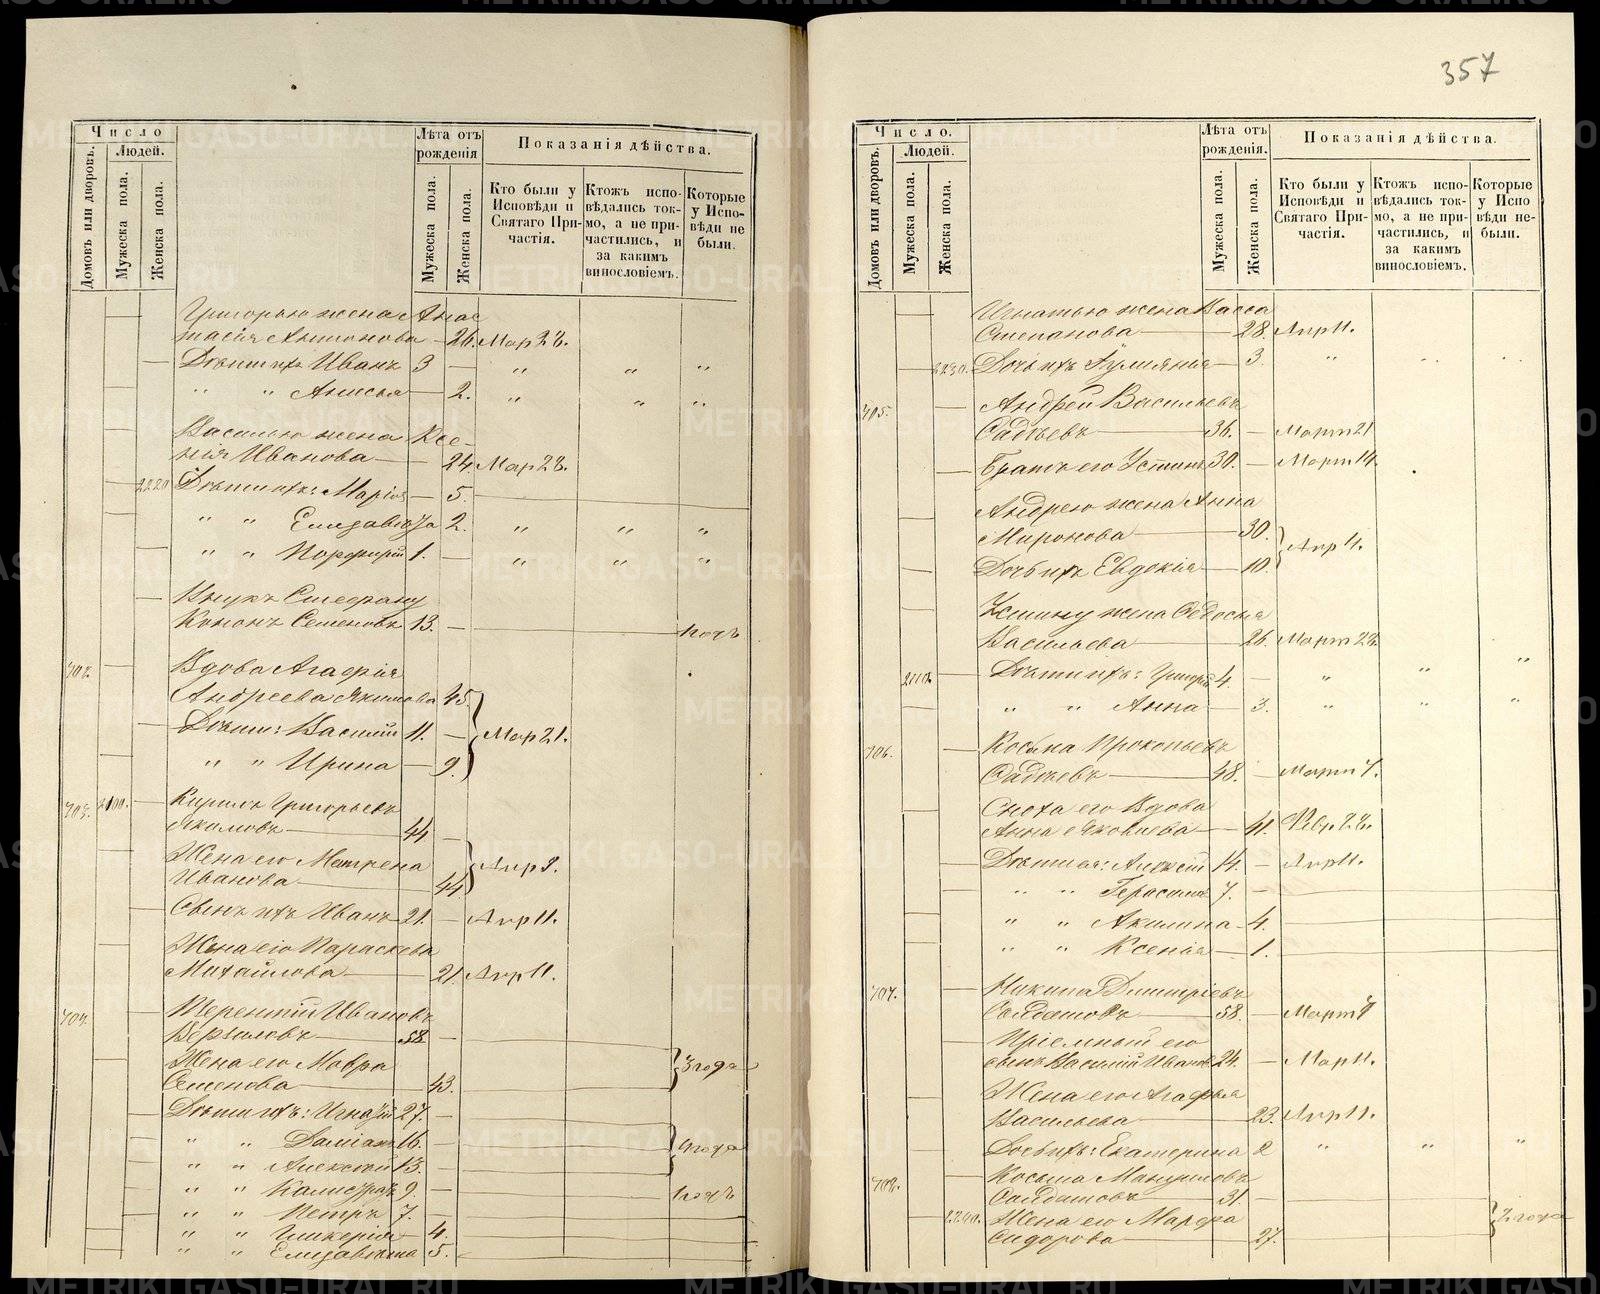 Число
Людей.
Домовъ или дворовъ.
Мужеска пола.
Женска пола.
Лѣта отъ
рожденія
Мужеска пола.
Женска пола.
Показанія дѣйства.
Кто были у
Исповѣди и
Святаго При-
частія.
Ктожъ испо-
вѣдались ток-
мо, а не при-
частились, и
за какимъ
винословіемъ.
Которые
у Испо-
вѣди не
были.
Григорью жена Анас
тасія Антонова — 26. Мар 28.
Дѣти ихъ Иванъ 3 — " " "
" " Анисья — 2. " " "
Василью жена Ксе-
нія Иванова — 24. Мар 28.
2220 Дѣти ихъ: Марія — 5.
" " Елизавета 2. " " "
" " Порфирій 1. — " " "
Внукъ Стефану
Кононъ Семеновъ 13. —
702. Вдова Агафія
Андреева Якимова 45.
Дѣти: Василій 11. — Мар 21.
" " Ирина — 9.
703. 2100. Кирилъ Григорьевъ
44 —
Жена его Матрена
Иванова — 44 Апр 8.
Сынъ ихъ Иванъ 21. — Апр 11.
Жена его Параскева
Михайлова — 21. Апр 11.
704. Терентій Ивановъ
58 —
Жена его Мавра
Семенова — 43. 3 года
Дѣти ихъ: Игнатій 27. —
" " Даміанъ 16. — 4 года
" " Алексѣй 13. —
" " Калистратъ 9. —
" " Петръ 7. —
" " Гликерія — 4.
" " Елизавета 5.
357
Число.
Людей.
Домовъ или дворовъ.
Мужеска пола.
Женска пола.
Лѣта отъ
рожденія.
Мужеска пола.
Женска пола.
Показанія дѣйства.
Кто были у
Исповѣди и
Святаго При-
частія.
Ктожъ испо-
вѣдались ток-
мо, а не при-
частились, и
за какимъ
винословіемъ.
Которые
у Испо
вѣди не-
были.
Игнатью жена Васса
Степанова — 28. Апр 11.
2230. Дочь ихъ Іуліянія — 3. " " "
705. Андрей Васильевъ
Фадѣевъ — 36. — Март 21
Братъ его Устинъ 30. — Март 14.
Андрею жена Анна
Миронова — 30. Апр 11.
Дочь ихъ Евдокія — 10.
Устину жена Ѳедосья
Васильева — 26. Март 28.
2110. Дѣти ихъ: Григорій 4. — " " "
" " Анна — 3. " " "
706. Косьма Прокопьевъ
Фадѣевъ — 48. — Март 7.
Сноха его Вдова
Анна Яковлева — 41. Февр 28.
Дѣти ея: Алексѣй 14. — Апр 11.
" " Герасимъ 7. —
" " Акилина — 4.
" " Ксенія — 1.
707. Никита Дмитріевъ
Салдатовъ — 58. — Март 7
Пріемный его
сынъ Василій Иванов 24. — Мар 11.
Жена его Агафья
Васильева — 23. Апр 11.
Дочь ихъ: Екатерина 2 " " "
708. Косьма Мануиловъ
Салдатовъ — 31 —
2240. Жена его Марфа
Сидорова — 27. 2 года
METRIKI.GASO-URAL.RU